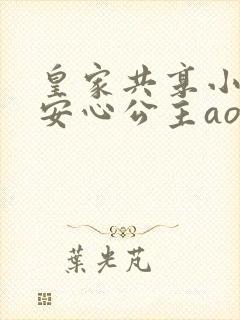 皇家共享小
安心公主ao
葉光芃